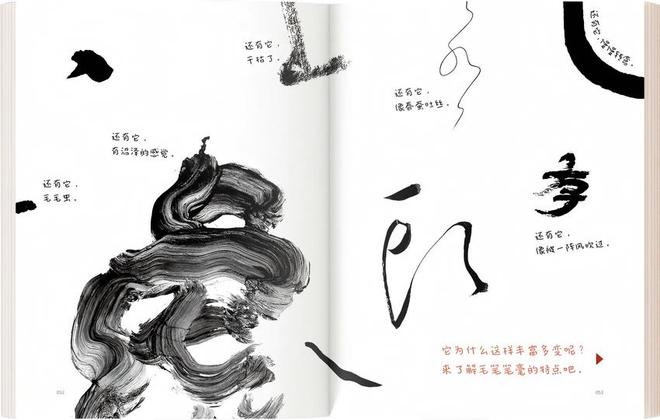 还有它，
干枯了。
还有它，
有沼泽的感觉。
还有它，
毛毛虫。
052
慢慢转弯。
还有它，
像春蚕吐丝。
还有它，
像被一阵风吹过。
它为什么这样丰富多变呢？
来了解毛笔笔毫的特点吧。
053